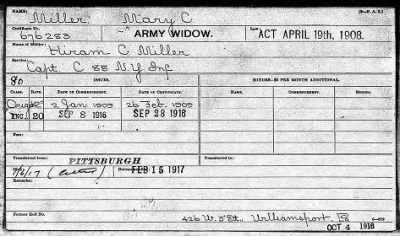 NAME:
Miller Mary C
No. of Certificate:
676283
ARMY WIDOW.
LAW:
ACT APRIL 19th, 1908.
Name of Soldier:
Hiram C Miller
Service:
Capt. C 88 N.Y Inf
80
ISSUES.
MINORS—$2 PER MONTH ADDITIONAL.
CLASS.
RATE.
DATE OF COMMENCEMENT.
DATE OF CERTIFICATE.
NAME.
COMMENCEMENT.
ENDING.
2 Jan 1909
26 Feb 1909
INC. 20
SEP 8 1916
SEP 28 1916
Transferred from:
PITTSBURGH
FEB 15 1917
Transferred to:
Remarks:
Former Roll No.
426 W. 3d St. Williamsport, Pa
OCT 4 1916